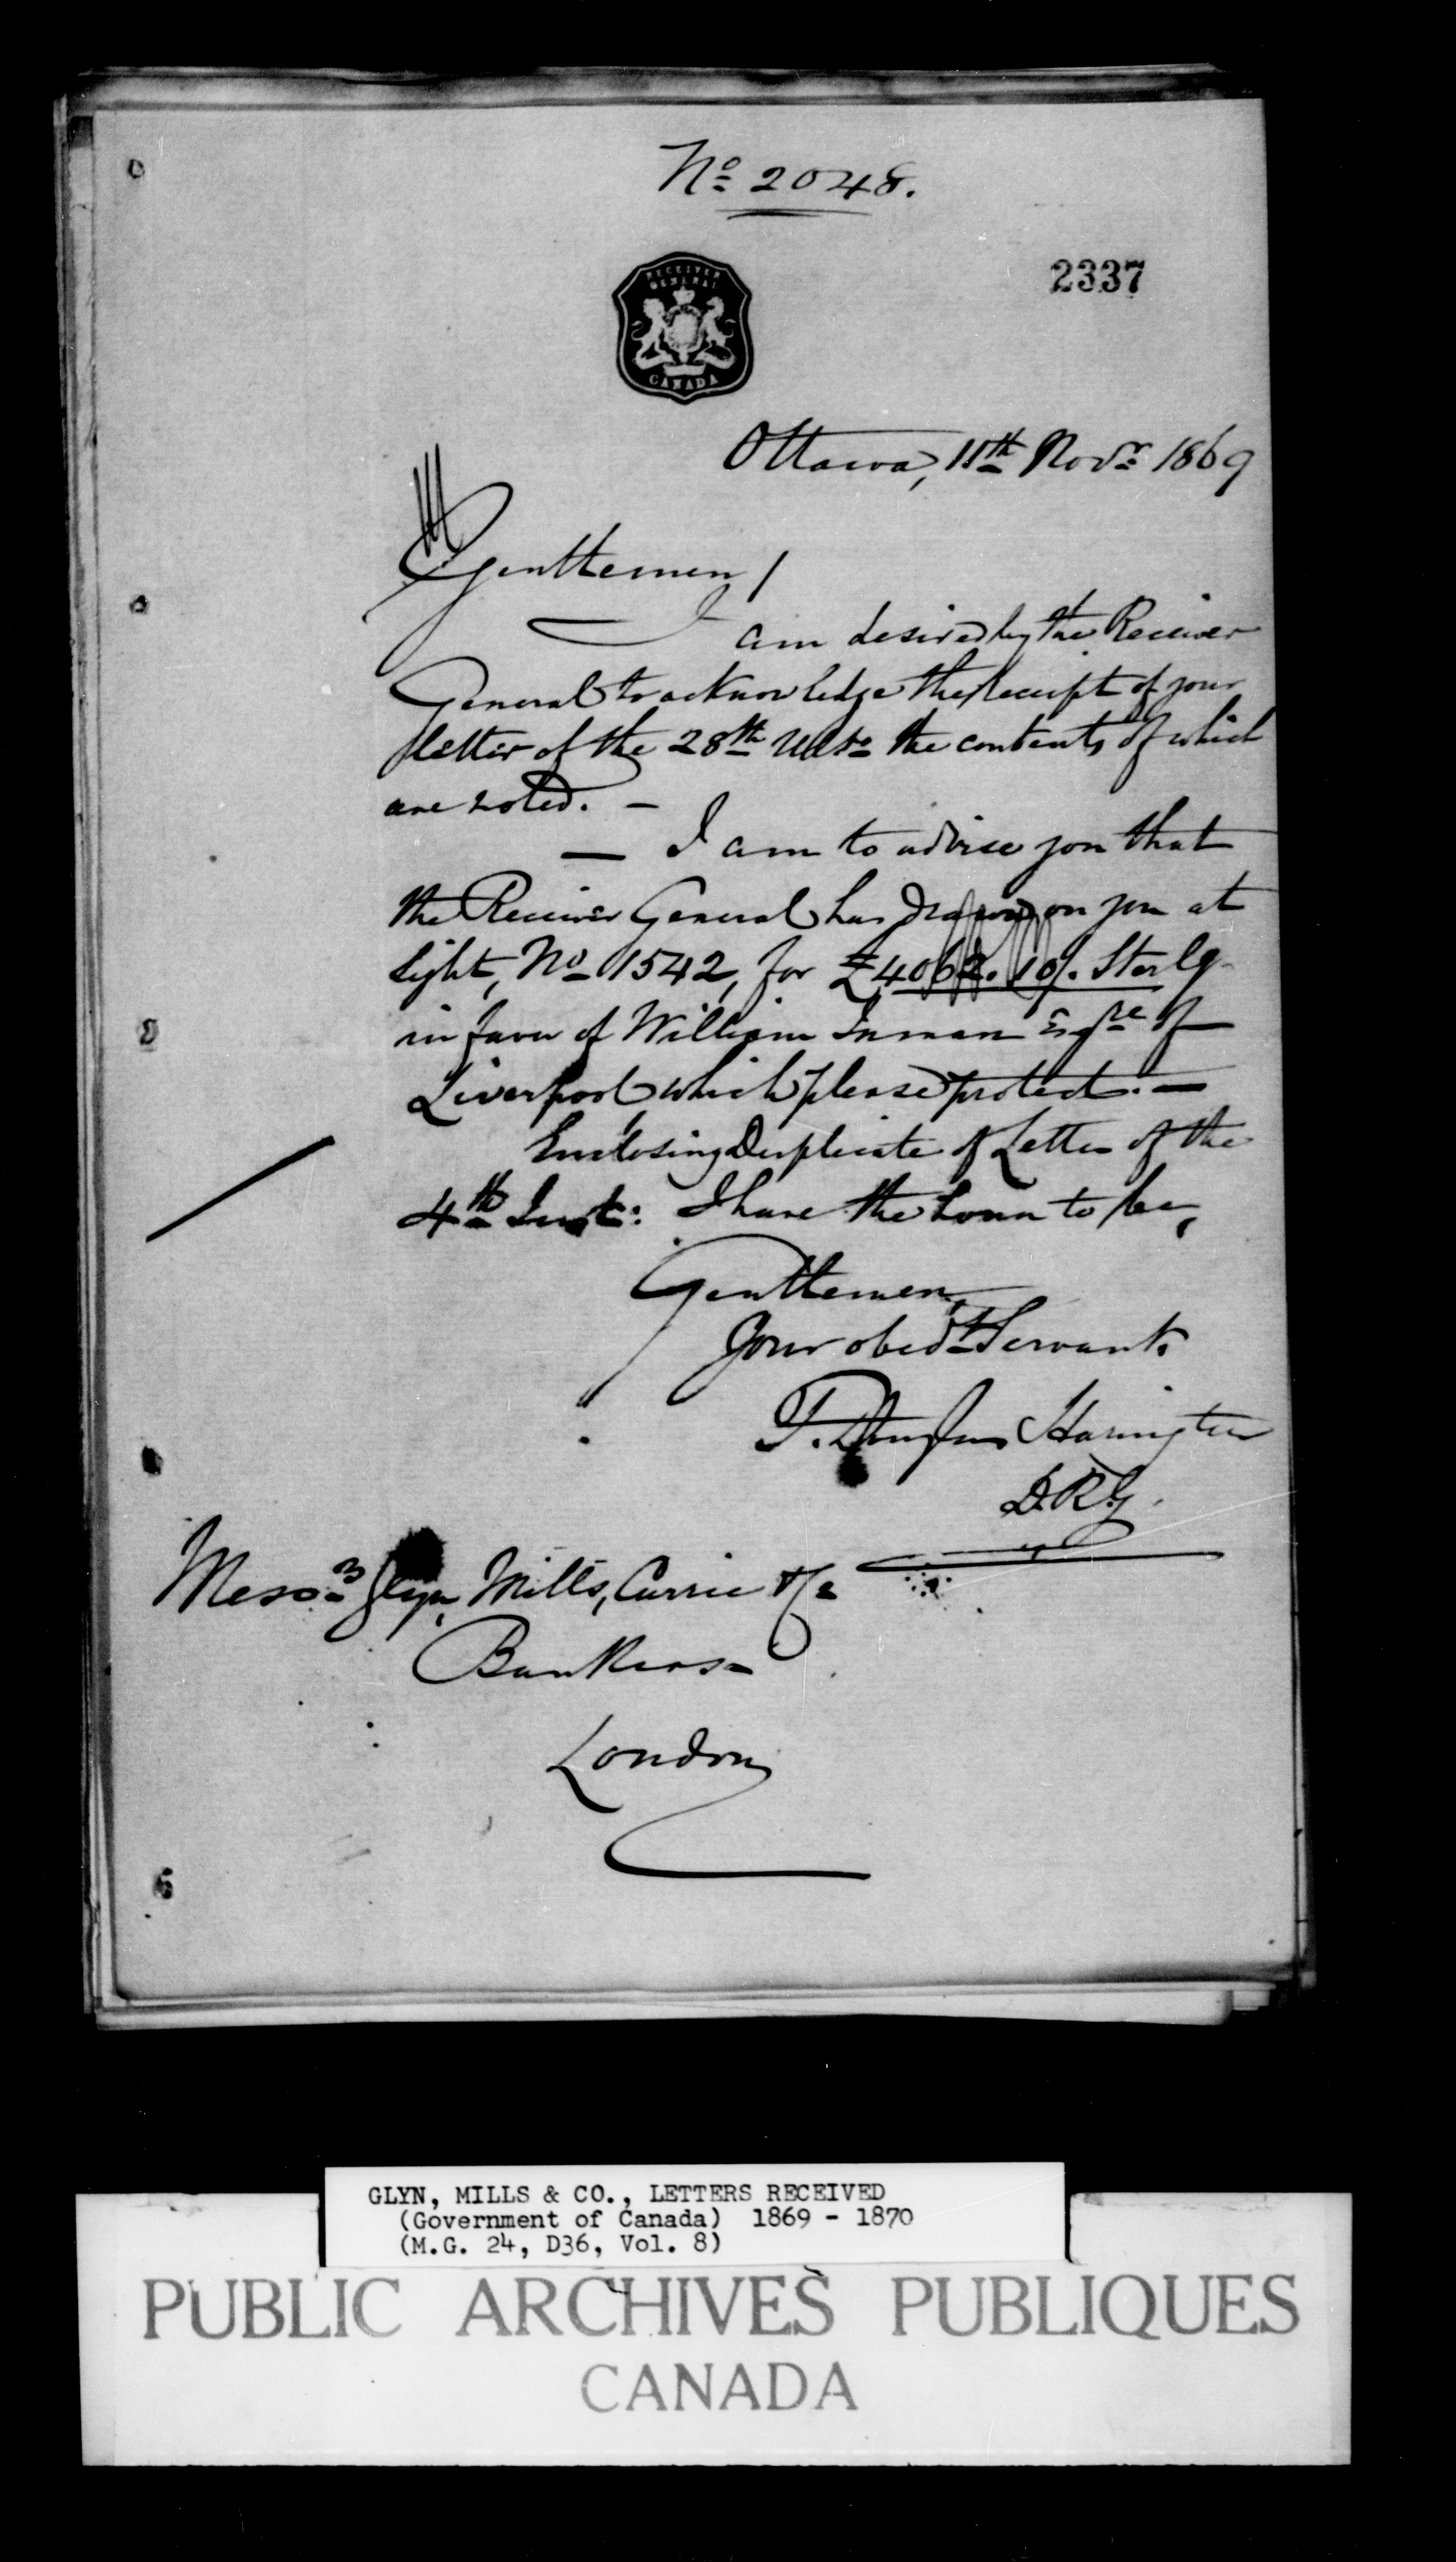 No 2048.
2337
RECEIVER
GENERAL
CANADA
Ottawa, 11th Novr 1869
Gentlemen,
I am desired by the Receiver
General to acknowledge the receipt of your
letter of the 28th Ulto the contents of which
are noted. —
— I am to advise you that
the Receiver General has drawn on you at
Sight, No 1542, for £4062. 10/. Sterlg
in favor of William Inman Esqre of
Liverpool which please protect. —
Enclosing Duplicate of Letter of the
4th Inst: I have the honor to be,
Gentlemen,
Your obedt Servant
T. Douglas Harington
D.R.G.
Messrs Glyn, Mills, Currie & Co
Bankers
London
GLYN, MILLS & CO., LETTERS RECEIVED
(Government of Canada) 1869 - 1870
(M.G. 24, D36, Vol. 8)
PUBLIC ARCHIVES PUBLIQUES
CANADA